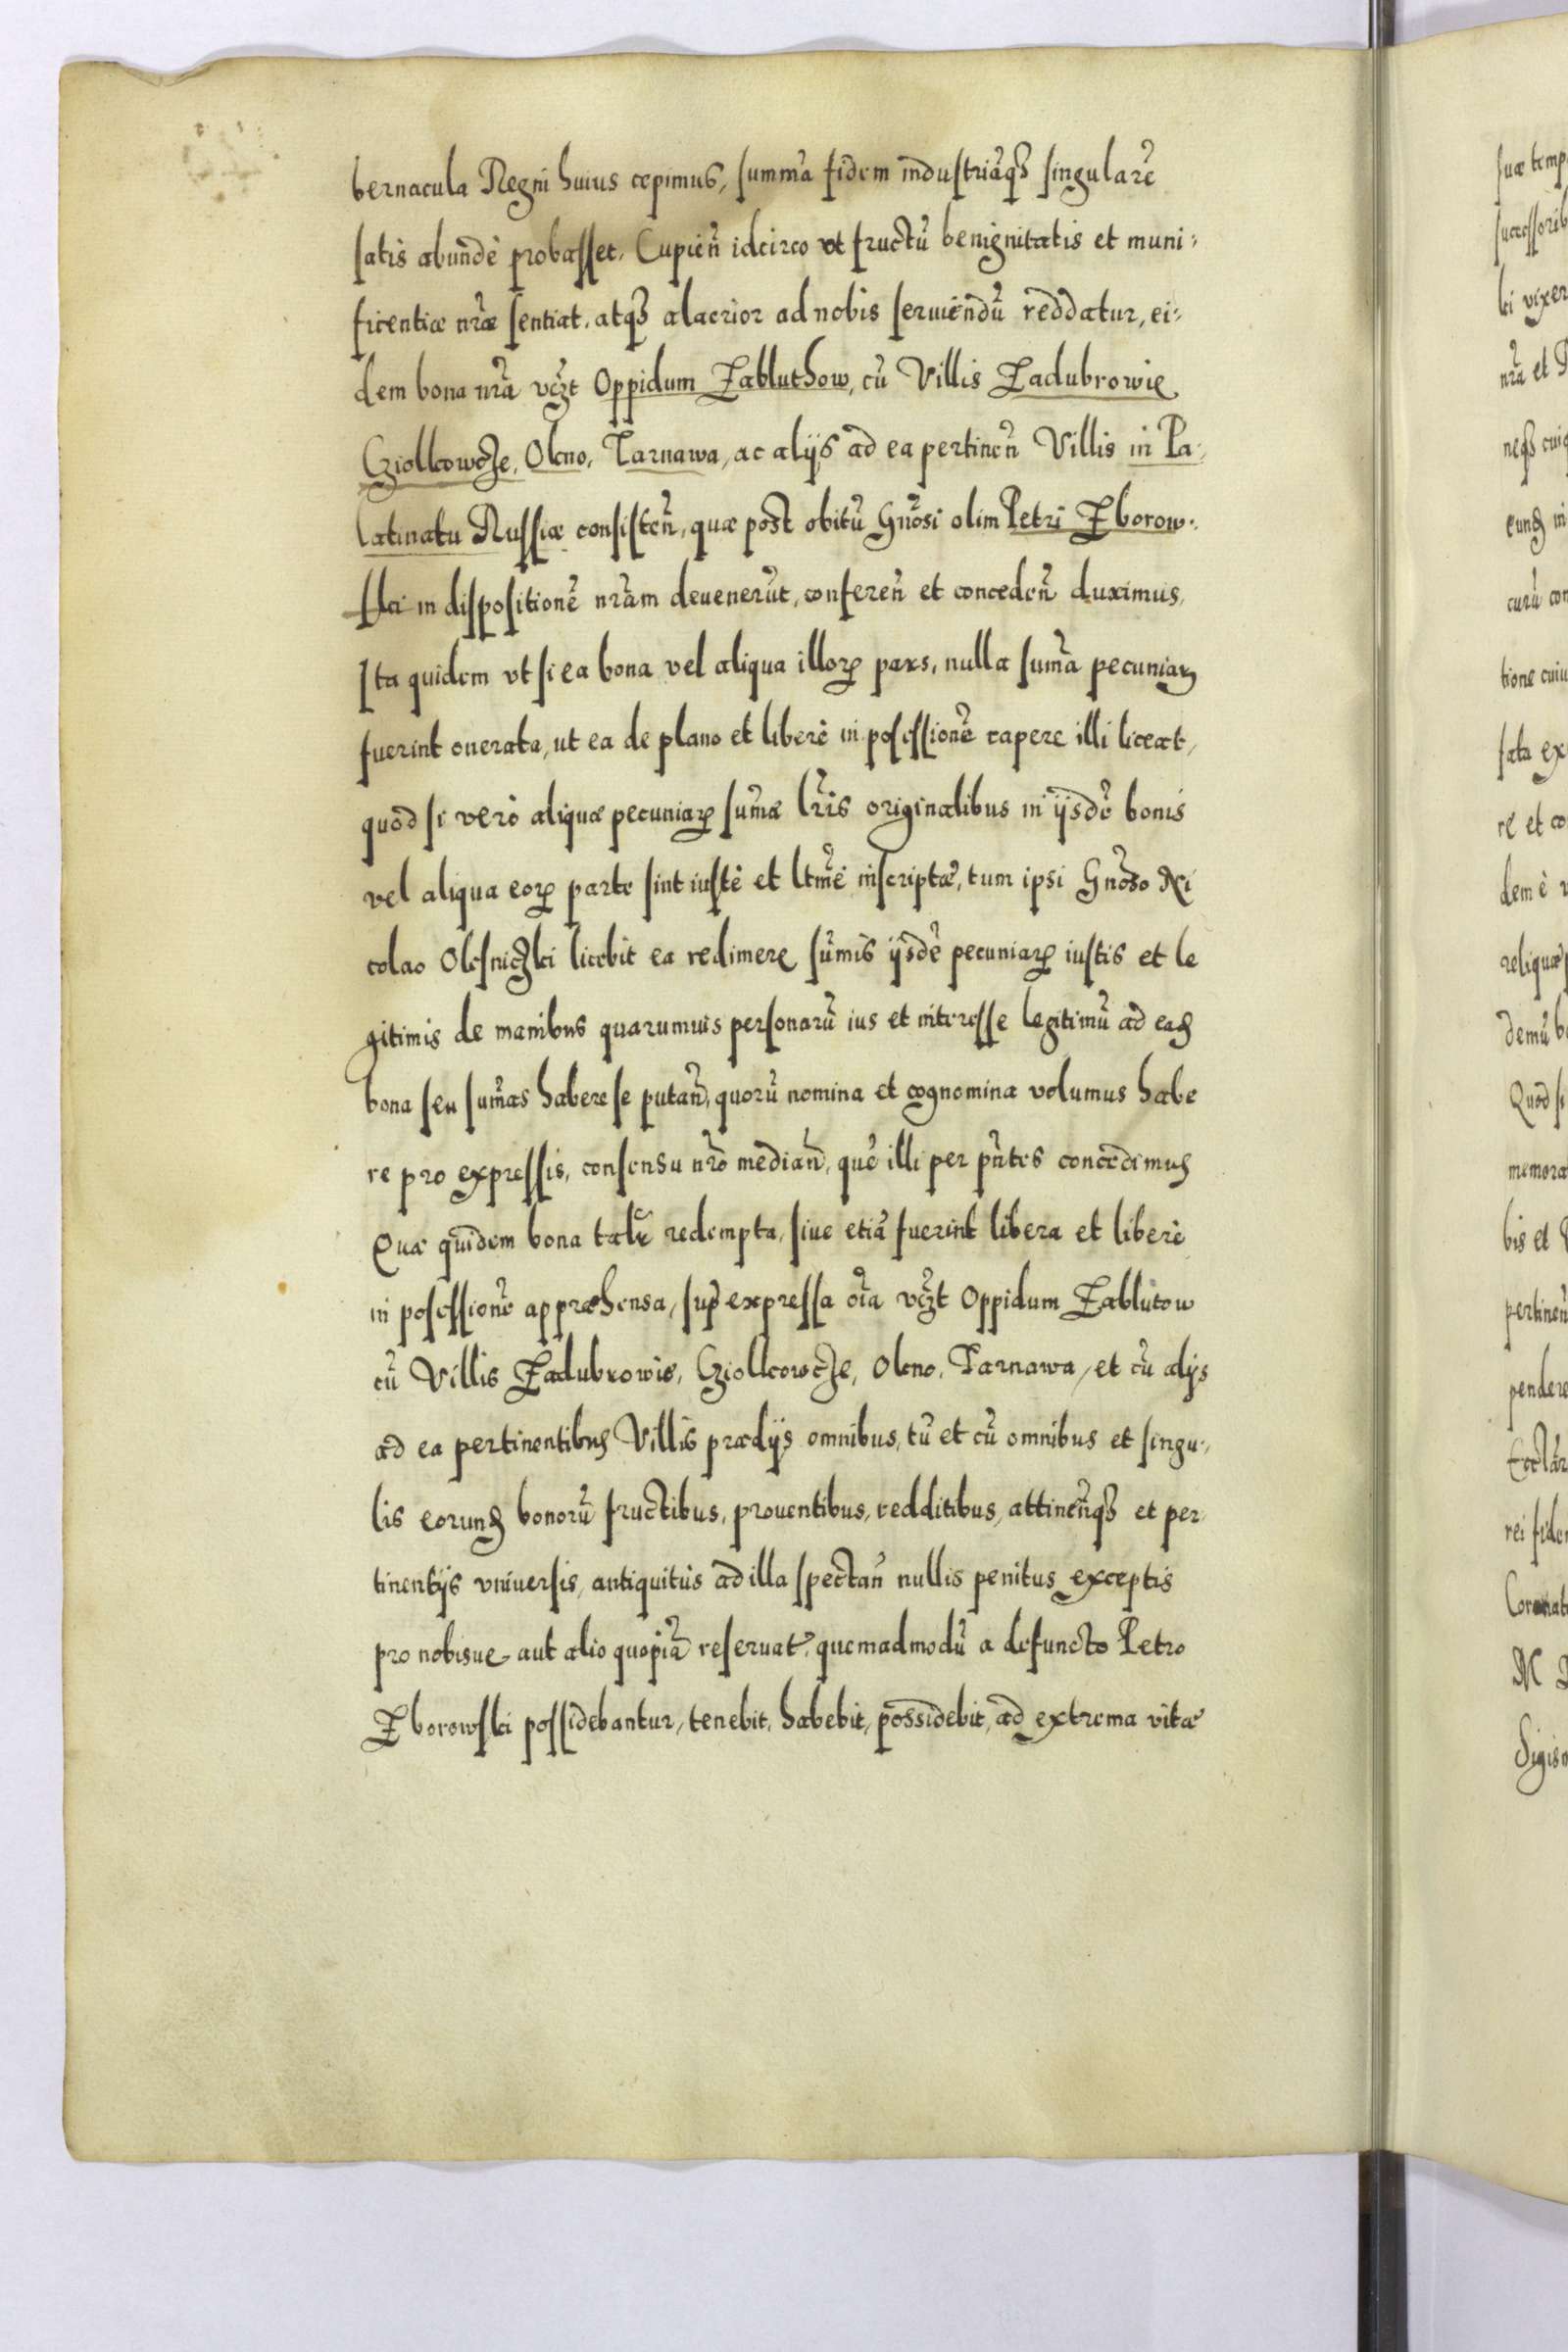 bernacula Regni huius cepimus, summã fidem industriãq₃ singularẽ
satis abundè probasset. Cupieñ idcirco vt fructũ benignitatis et muni-
ficentiæ nr̃æ sentiat, atq₃ alacrior ad nobis seruiendũ reddatur, ei-
dem bona nr̃a vcz̃t Oppidum Zabluthow, cũ Villis Zadubrowie
Cziolkowcze, Olcno, Tarnawa, ac alijs ad ea pertineñ Villis in Pa-
latinatu Russiæ consisteñ, quæ post obitũ Gnõsi olim Petri Zborow-
ski in dispositionẽ nr̃am deuenerũt, confereñ et concedeñ duximus,
Ita quidem vt si ea bona vel aliqua illoꝝ pars, nulla sum̃a pecuniaꝝ
fuerint onerata, ut ea de plano et liberè in possessionẽ capere illi liceat,
quod si verò aliquæ pecuniaꝝ sum̃æ lr̃is originalibus in ijsdẽ bonis
vel aliqua eoꝝ parte sint iustè et ltm̃è inscriptæ, tum ipsi Gnõso Ni
colao Olesniczki licebit ea redimere sum̃is ijsdẽ pecuniaꝝ iustis et le
gitimis de manibus quarumuis personarũ ius et interesse legitimũ ad eaḋ
bona seu sum̃as habere se putañ, quorũ nomina et cognomina volumus habe
re pro expressis, consensu nr̃o mediañ, quẽ illi per pñtes concedimus
Quæ quidem bona talr̃ redempta, siue etiã fuerint libera et liberè
in possessionẽ appræhensa, sup̃ expressa oĩa vcz̃t Oppidum Zablutow
cũ Villis Zadubrowie, Cziolkowcze, Olcno, Tarnawa, et cũ alijs
ad ea pertinentibus Villis prædijs omnibus, tũ et cũ omnibus et singu-
lis eorunḋ bonorũ fructibus, prouentibus, redditibus, attineñq₃ et per
tinentijs vniuersis, antiquitùs ad illa spectañ nullis penitus exceptis
pro nobisue aut alio quopiã reseruat̃, quemadmodũ a defuncto Petro
Zborowski possidebantur, tenebit, habebit, possidebit, ad extrema vitæ